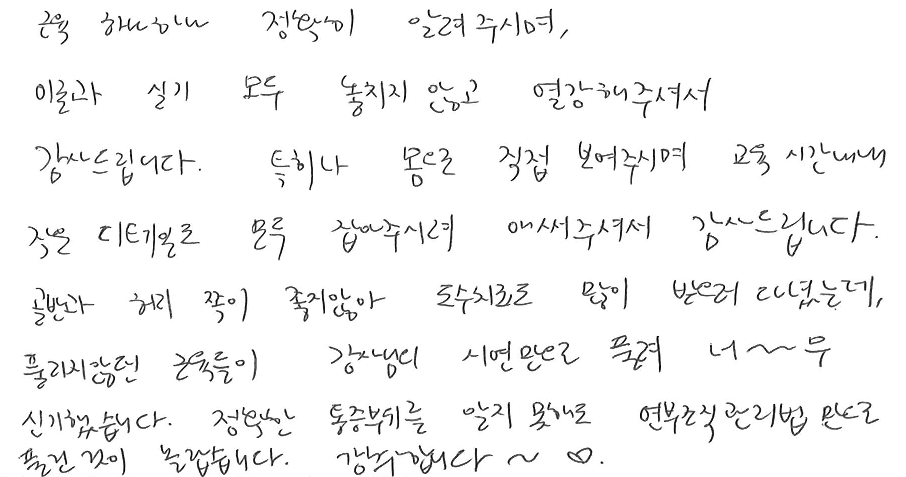 근육 하나하나 정확히 알려주시며,
이론과 실기 모두 놓치지 않고 열강해주셔서
감사드립니다. 특히나 몸으로 직접 보여주시며 교육 시간내내
작은 디테일로 모두 잡아주시려 애써주셔서 감사드립니다.
골반과 허리 쪽이 좋지않아 도수치료로 많이 받으러 다녔는데,
풀리지않던 근육들이 강사님의 시연만으로 풀려 너~~무
신기했습니다. 정확한 통증부위를 알지 못해도 연부조직관리법 만으로
풀린 것이 놀랍습니다. 감사합니다~ ♡.